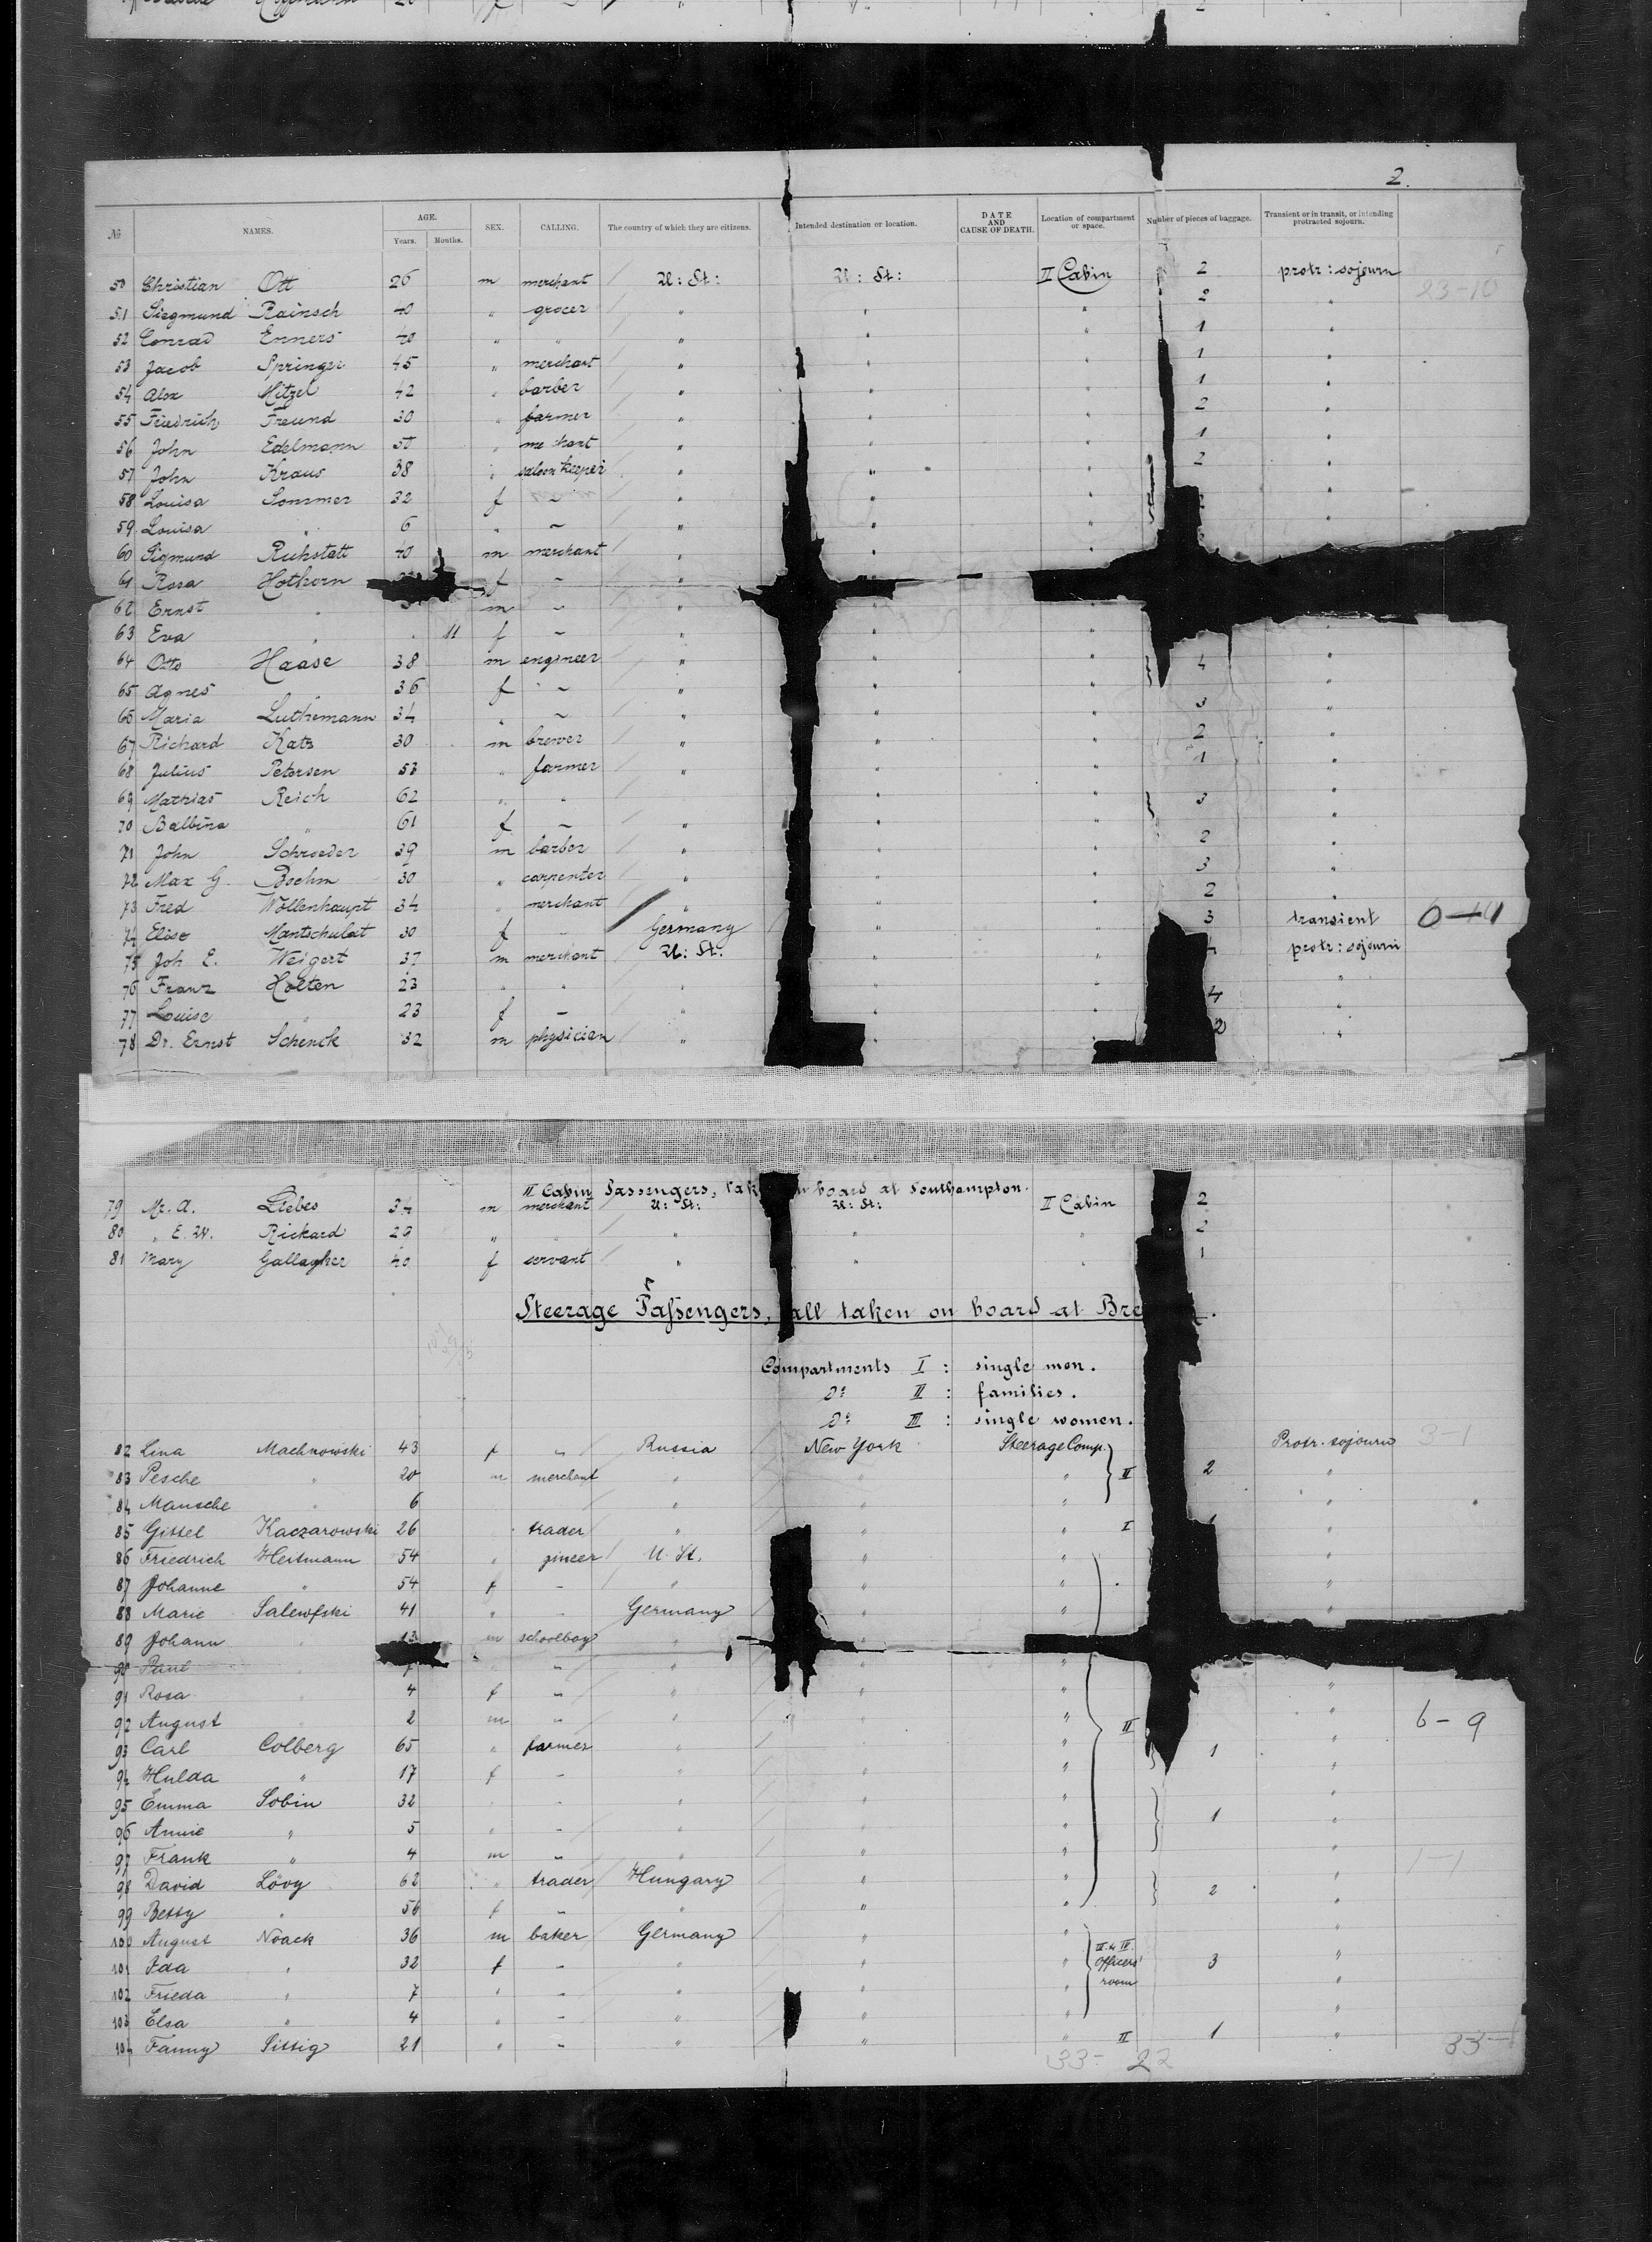 2.
№ NAMES. AGE. Years. Months. SEX. CALLING. The country of which they are citizens. Intended destination or location. DATE AND CAUSE OF DEATH. Location of compartment or space. Number of pieces of baggage. Transient or in transit, or intending protracted sojourn.
50 Christian Ott 26 m merchant U: St: U: St: II Cabin 2 protr: sojourn 23-10
51 Siegmund Rainsch 40 " grocer " " " 2 "
52 Conrad Enners 40 " " " " " 1 "
53 Jacob Springer 45 " merchant " " " 1 "
54 Alex Hitzel 42 " barber " " " 1 "
55 Friedrich Freund 30 " farmer " " " 2 "
56 John Edelmann 50 " me hant " " " 1 "
57 John Kraus 38 " saloon keeper " " " 2 "
58 Louisa Sommer 32 f - " " " "
59 Louisa " 6 " - " " " "
60 Sigmund Ruhstatt 40 m merchant " "
61 Rosa Hothorn f - "
62 Ernst " m - " " "
63 Eva " " 11 f - " " " "
64 Otto Haase 38 m engineer " " " 4 "
65 Agnes " 36 f - " " " "
66 Maria Luthemann 34 " - " " " 3 "
67 Richard Katz 30 m brewer " " " 2 "
68 Julius Petersen 53 " farmer " " " 1 "
69 Mathias Reich 62 " " " " " 3 "
70 Balbina " 61 f - " " " "
71 John Schroeder 39 m barber " " " 2 "
72 Max G. Boehm 30 " carpenter " " " 3 "
73 Fred Wollenhaupt 34 " merchant " " " 2 "
74 Elise Mantschulat 30 f - Germany " " 3 transient 0-1
75 Joh E. Weigert 37 m merchant U: St: " " protr: sojourn
76 Franz Holten 23 " " " " " 4 "
77 Louise " 23 f - " " "
78 Dr. Ernst Schenck 32 m physician " " 2 "
II Cabin Passengers, tak n board at Southampton.
79 Mr. A. Liebes 34 m merchant U: St: U: St: II Cabin 2
80 " E. W. Rickard 29 " " " " " 2
81 Mary Gallagher 40 f servant " " " 1
Steerage Passengers, all taken on board at Bre
Compartments I : single men.
Do II : families.
Do III : single women.
82 Lina Machnowski 43 f " Russia New York Steerage Comp. Protr. sojourn 3-1
83 Pesche " 20 m merchant " " " II 2 "
84 Mausche " 6 " " " "
85 Gittel Kaczarowski 26 trader " " " I "
86 Friedrich Heitmann 54 " gineer U. St. " " "
87 Johanne " 54 f - " " " "
88 Marie Salewski 41 " - Germany " " "
89 Johann " 13 m schoolboy " "
90 Paul " 7 " - " " "
91 Rosa " 4 f - " " " "
92 August " 2 m - " " " II " 6-9
93 Carl Colberg 65 " farmer " " " 1 "
94 Hulda " 17 f - " " " "
95 Emma Sobin 32 " - " " " 1 "
96 Annie " 5 " - " " " "
97 Frank " 4 m - " " " " 1-1
98 David Lövy 62 " trader Hungary " " 2 "
99 Betty " 56 f - " " " "
100 August Noack 36 m baker Germany " " III & IV. "
101 Ida " 32 f - " " " Officers' 3 "
102 Frieda " 7 " - " " " room "
103 Elsa " 4 " - " " " "
104 Fanny Sittig 21 " - " " " II 1 "
33- 22 33-1